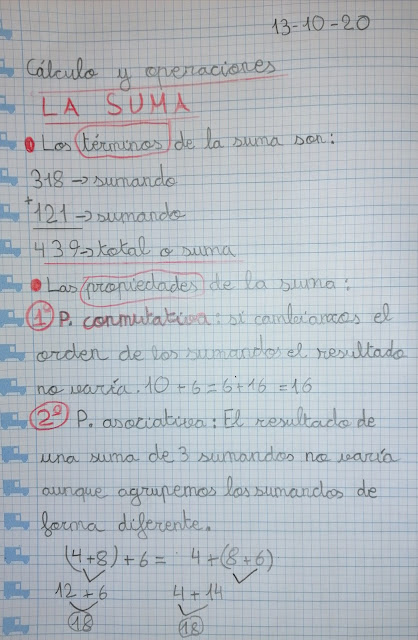 13-10-20
Cálculo y operaciones
LA SUMA
Los términos de la suma son:
318 → sumando
+121 → sumando
439 → total o suma
Las propiedades de la suma:
1º P. conmutativa: si cambiamos el
orden de los sumandos el resultado
no varía. 10 + 6 = 6 + 16 = 16
2º P. asociativa: El resultado de
una suma de 3 sumandos no varía
aunque agrupemos los sumandos de
forma diferente.
(4+8) + 6 = 4 + (8 + 6)
12 + 6 4 + 14
18 18